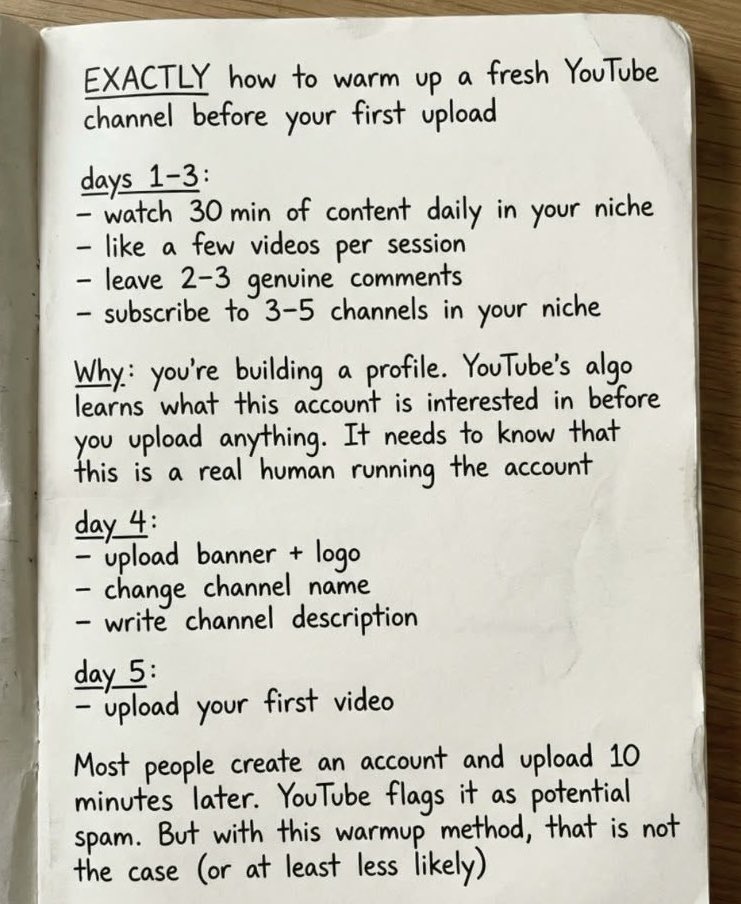 EXACTLY how to warm up a fresh YouTube
channel before your first upload
days 1-3:
- watch 30 min of content daily in your niche
- like a few videos per session
- leave 2-3 genuine comments
- subscribe to 3-5 channels in your niche
Why: you're building a profile. YouTube's algo
learns what this account is interested in before
you upload anything. It needs to know that
this is a real human running the account
day 4:
- upload banner + logo
- change channel name
- write channel description
day 5:
- upload your first video
Most people create an account and upload 10
minutes later. YouTube flags it as potential
spam. But with this warmup method, that is not
the case (or at least less likely)